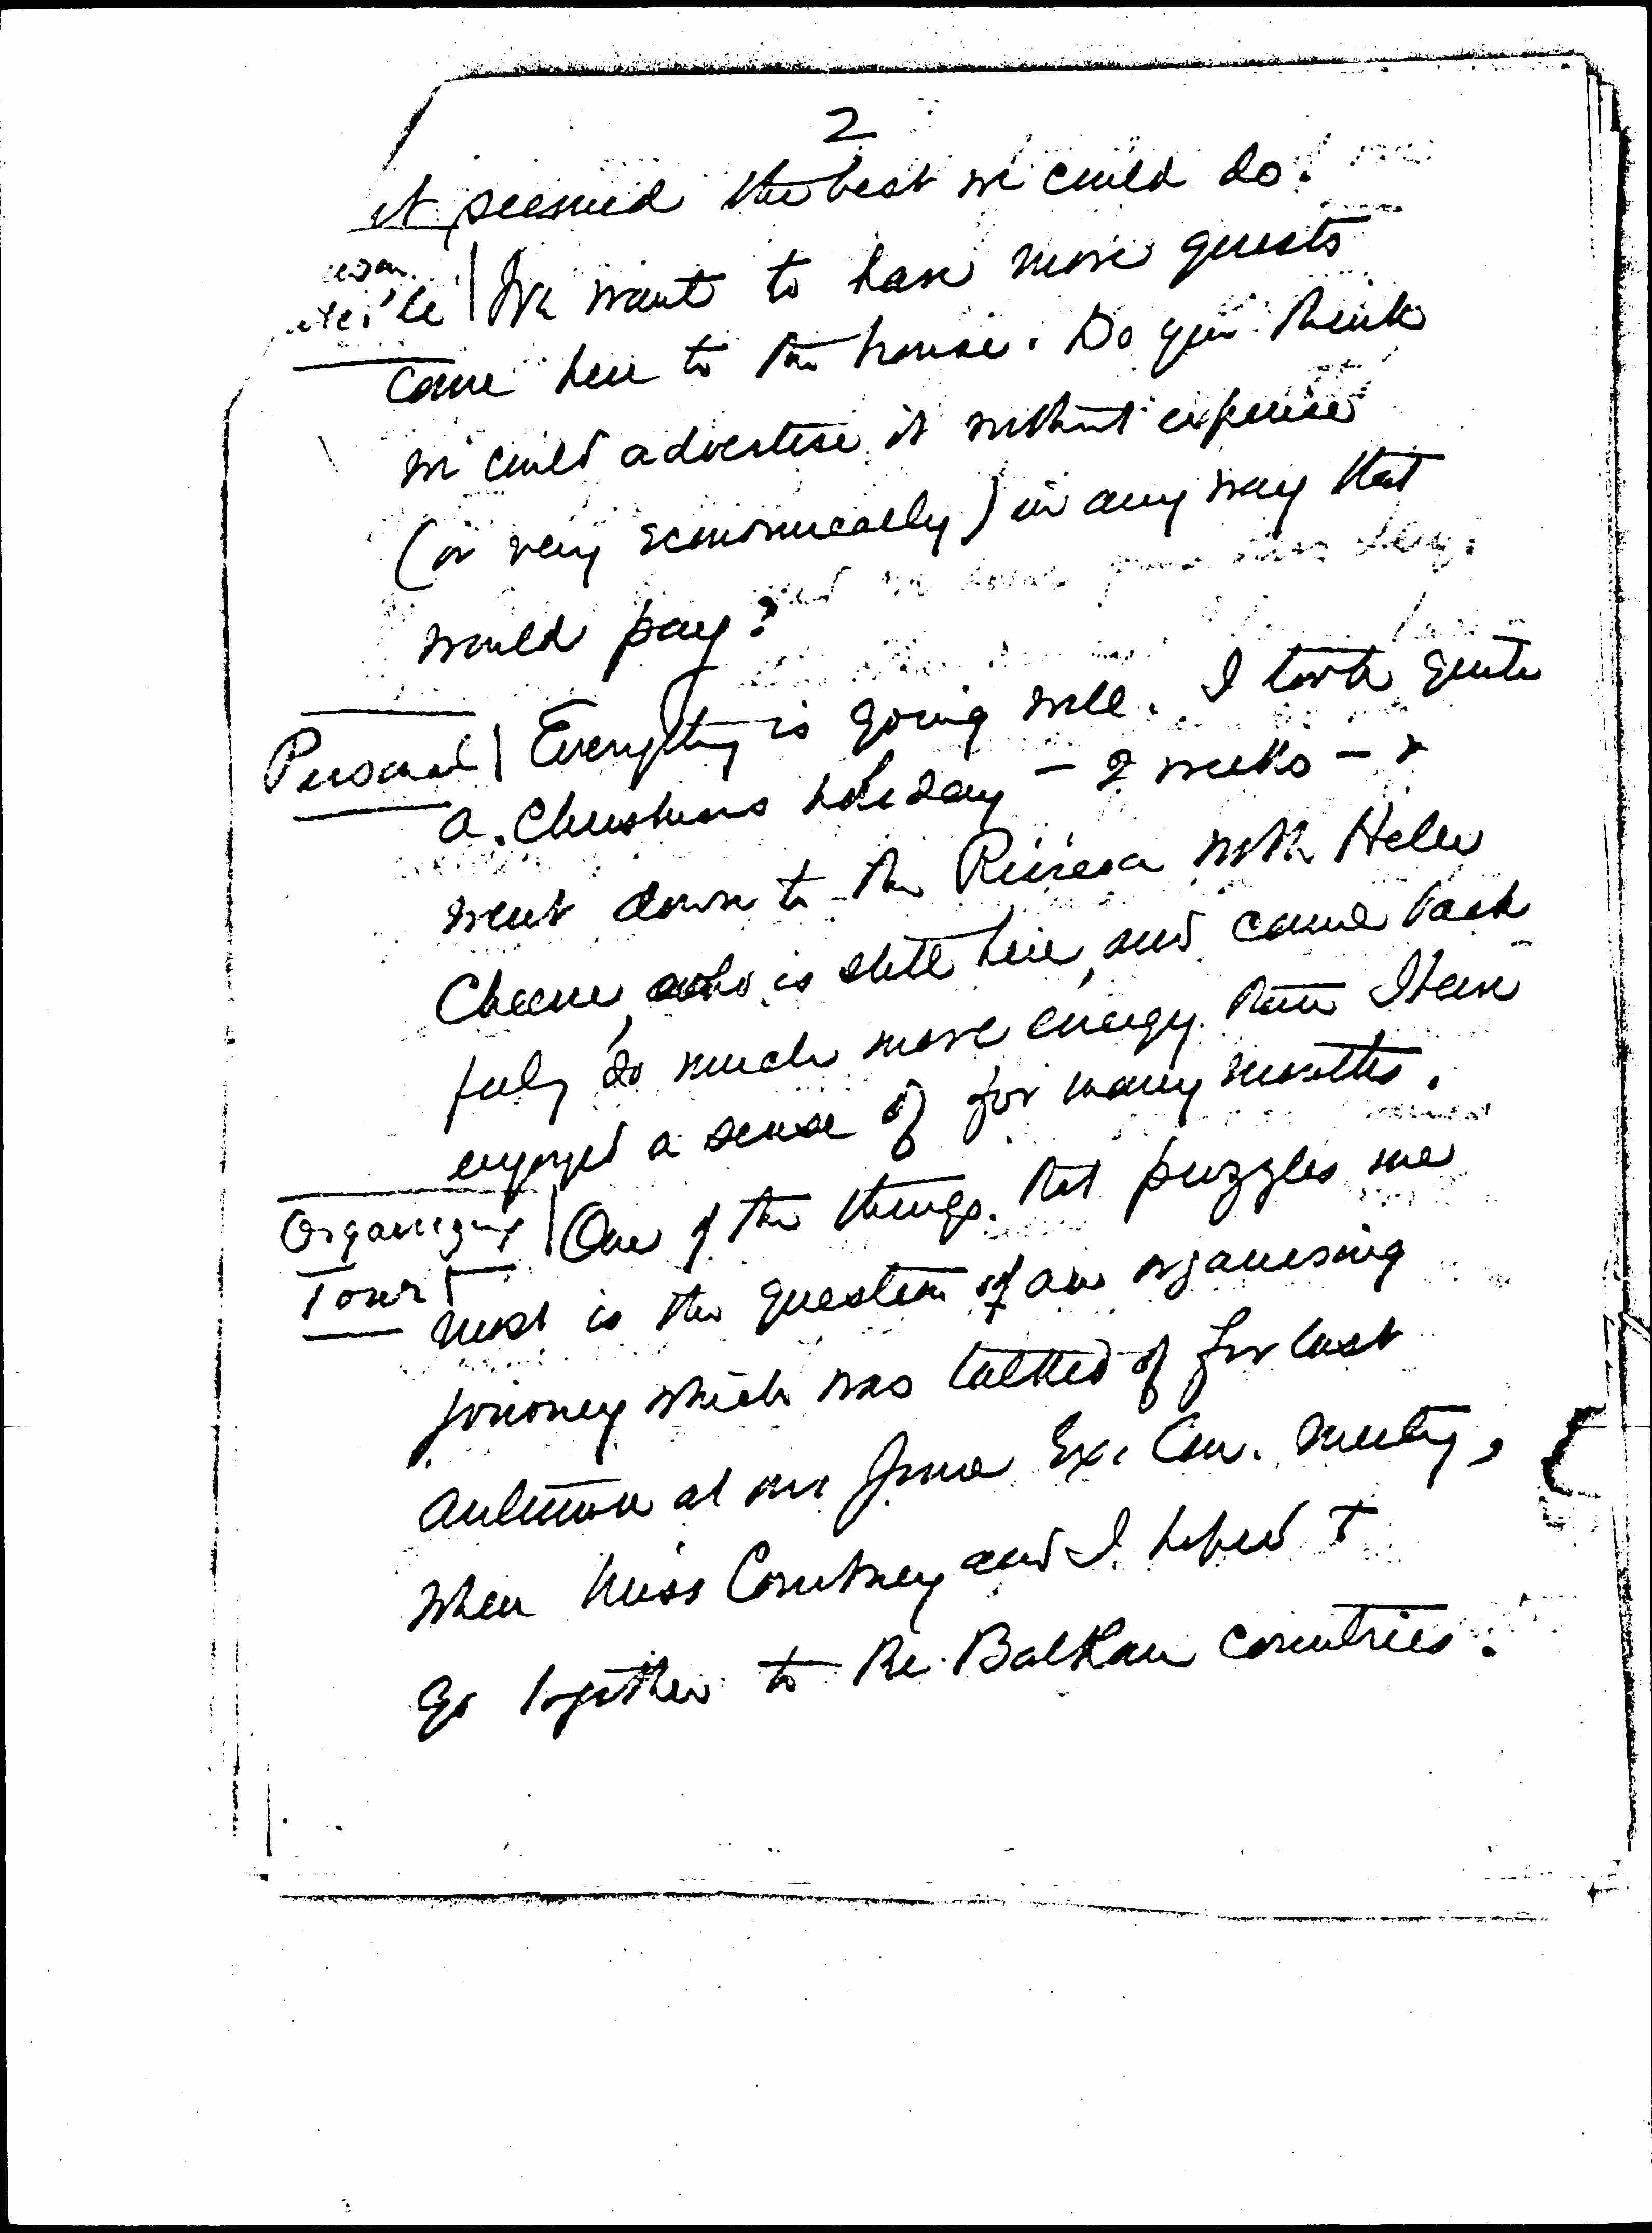 2
it seemed the best we could do.
We want to have more guests
come here to the house. Do you think
we could advertise it without expense
(or very economically) in any way that
would pay?
Personal | Everything is going well. I took quite
a Christmas holiday – 2 weeks – &
went down to the Riviera with Helen
Cheever, who is still here, and came back
feeling so much more energy than I have
enjoyed a sense of for many months.
Organizing | One of the things that puzzles me
Tour
most is the question of an organising
journey which was talked of for last
autumn at our June Ex. Com. meeting,
when Miss Courtney and I hoped to
go together to the Balkan countries.